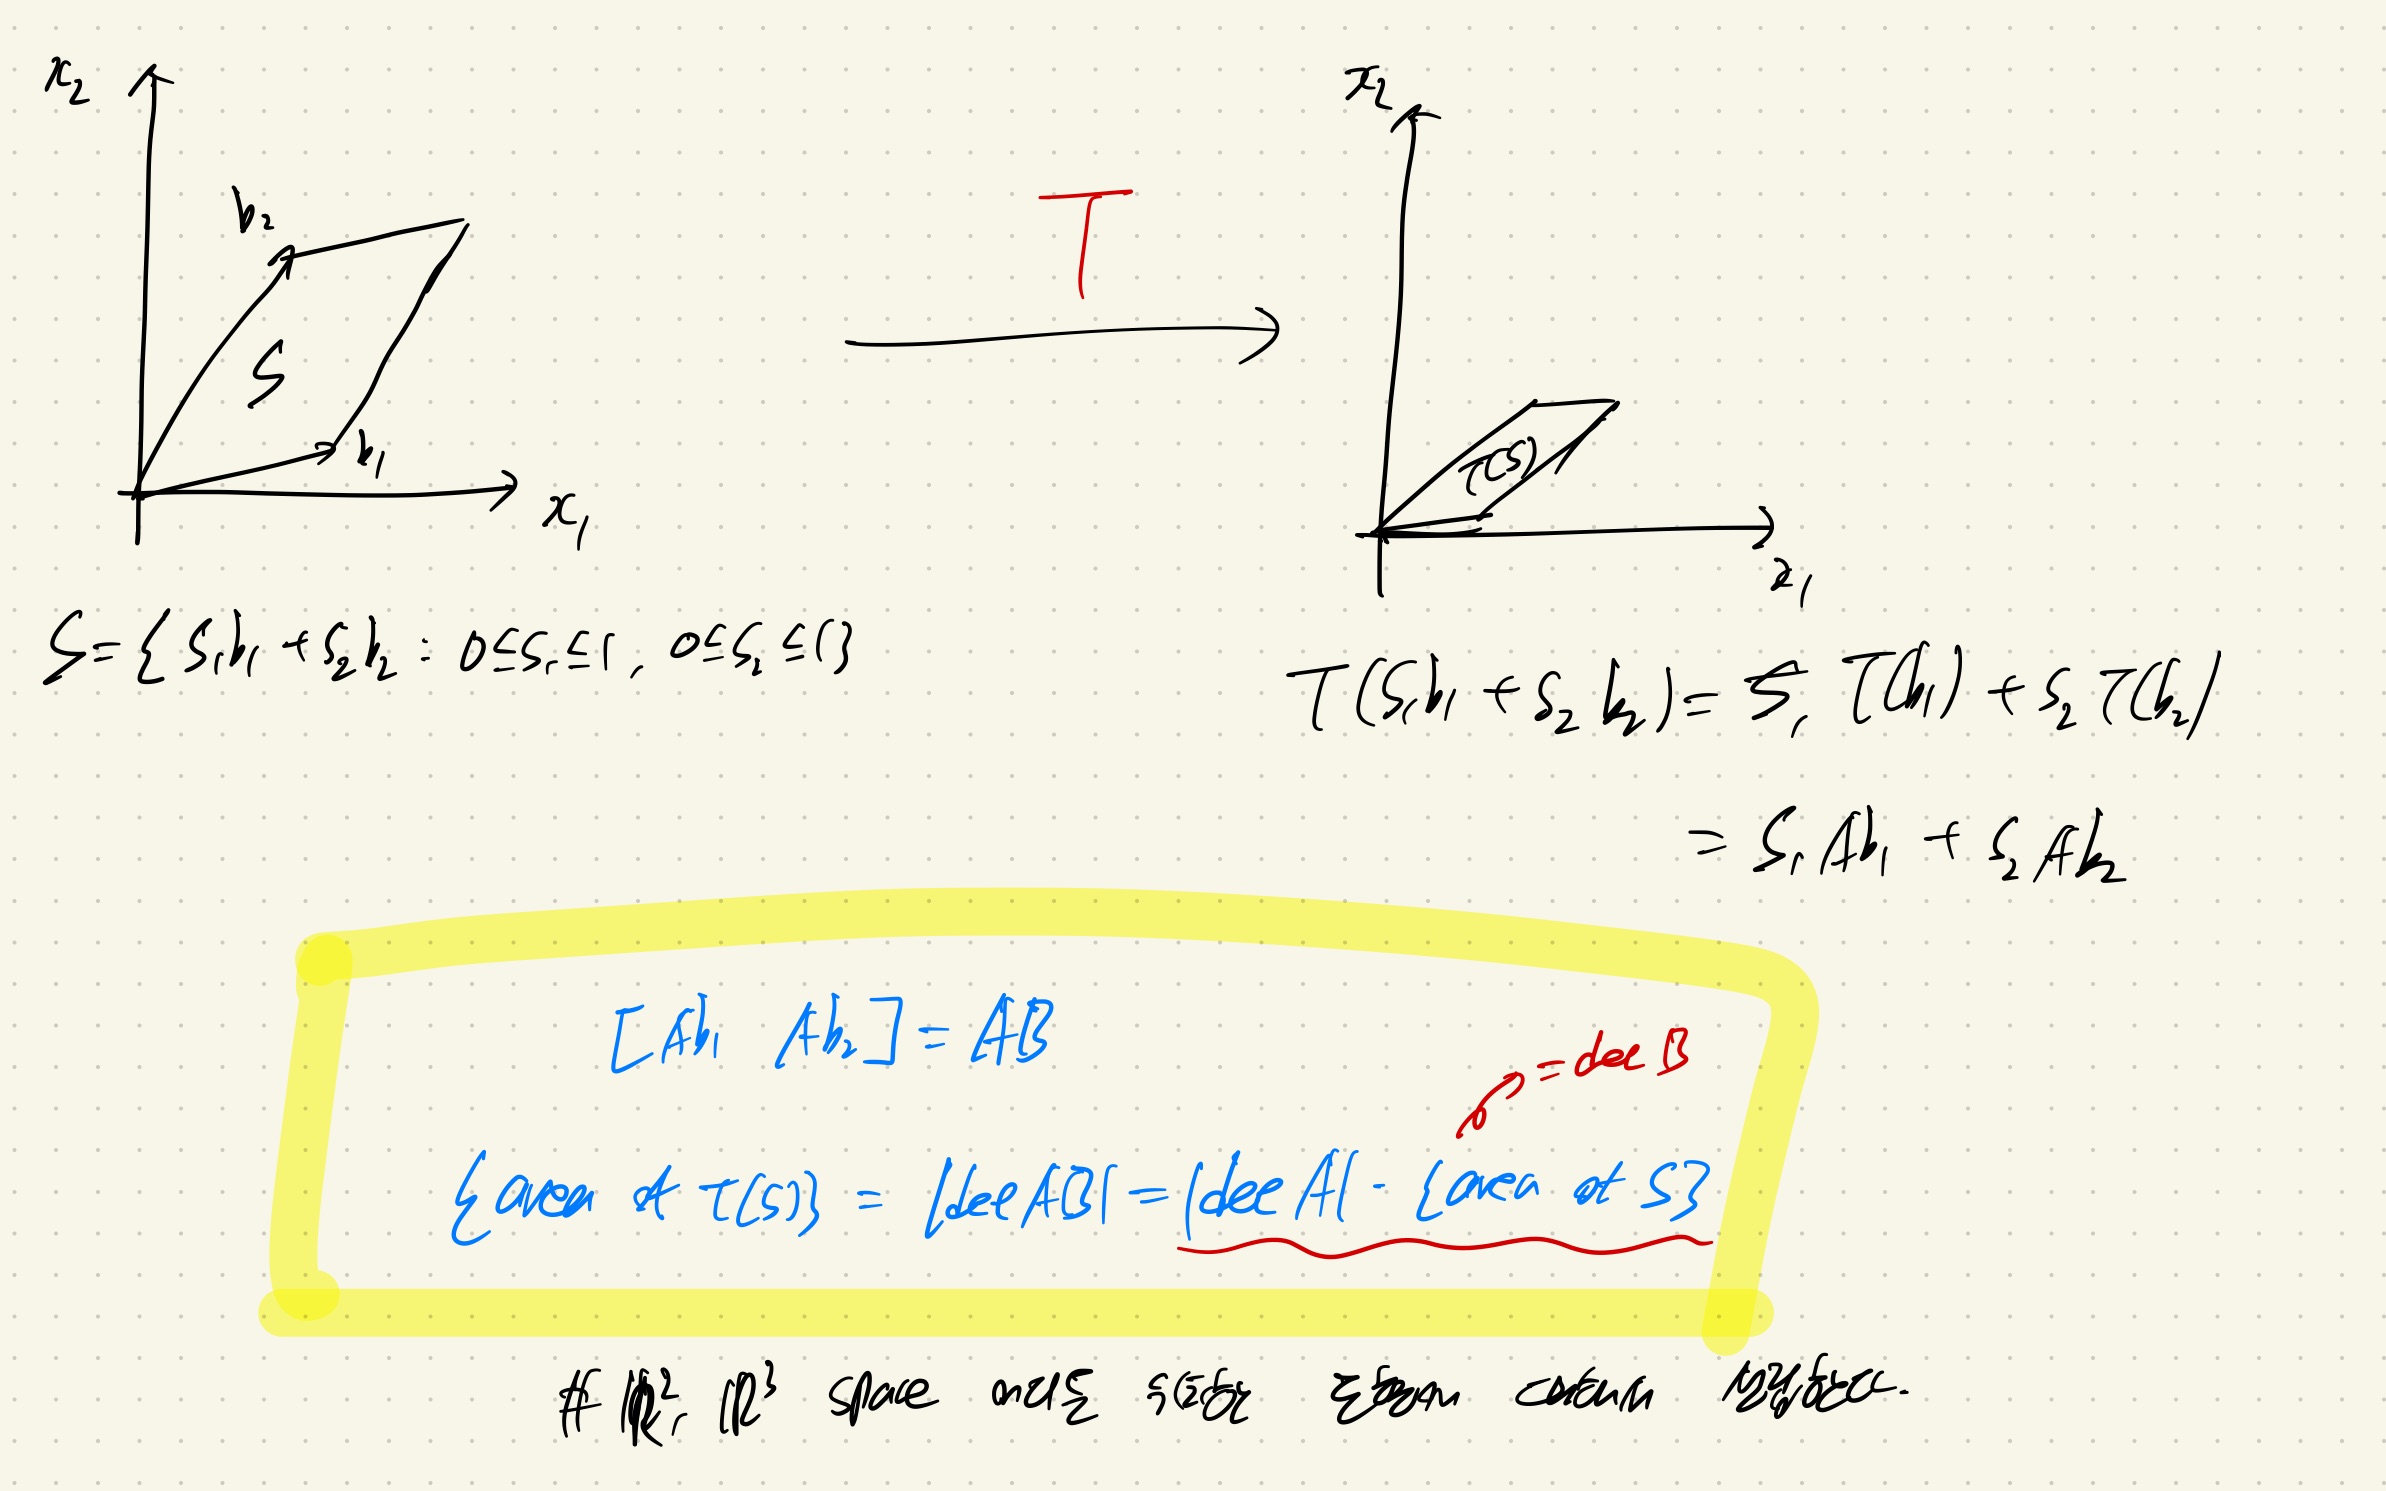 x₂
b₂
S
b₁
x₁
T
x₂
T(S)
x₁
S = {s₁b₁ + s₂b₂ : 0 ≤ s₁ ≤ 1, 0 ≤ s₂ ≤ 1}
T(s₁b₁ + s₂b₂) = s₁T(b₁) + s₂T(b₂)
= s₁Ab₁ + s₂Ab₂
[Ab₁ Ab₂] = AB
= det B
{area of T(S)} = |det AB| = |det A| · {area of S}
# R², R³ space